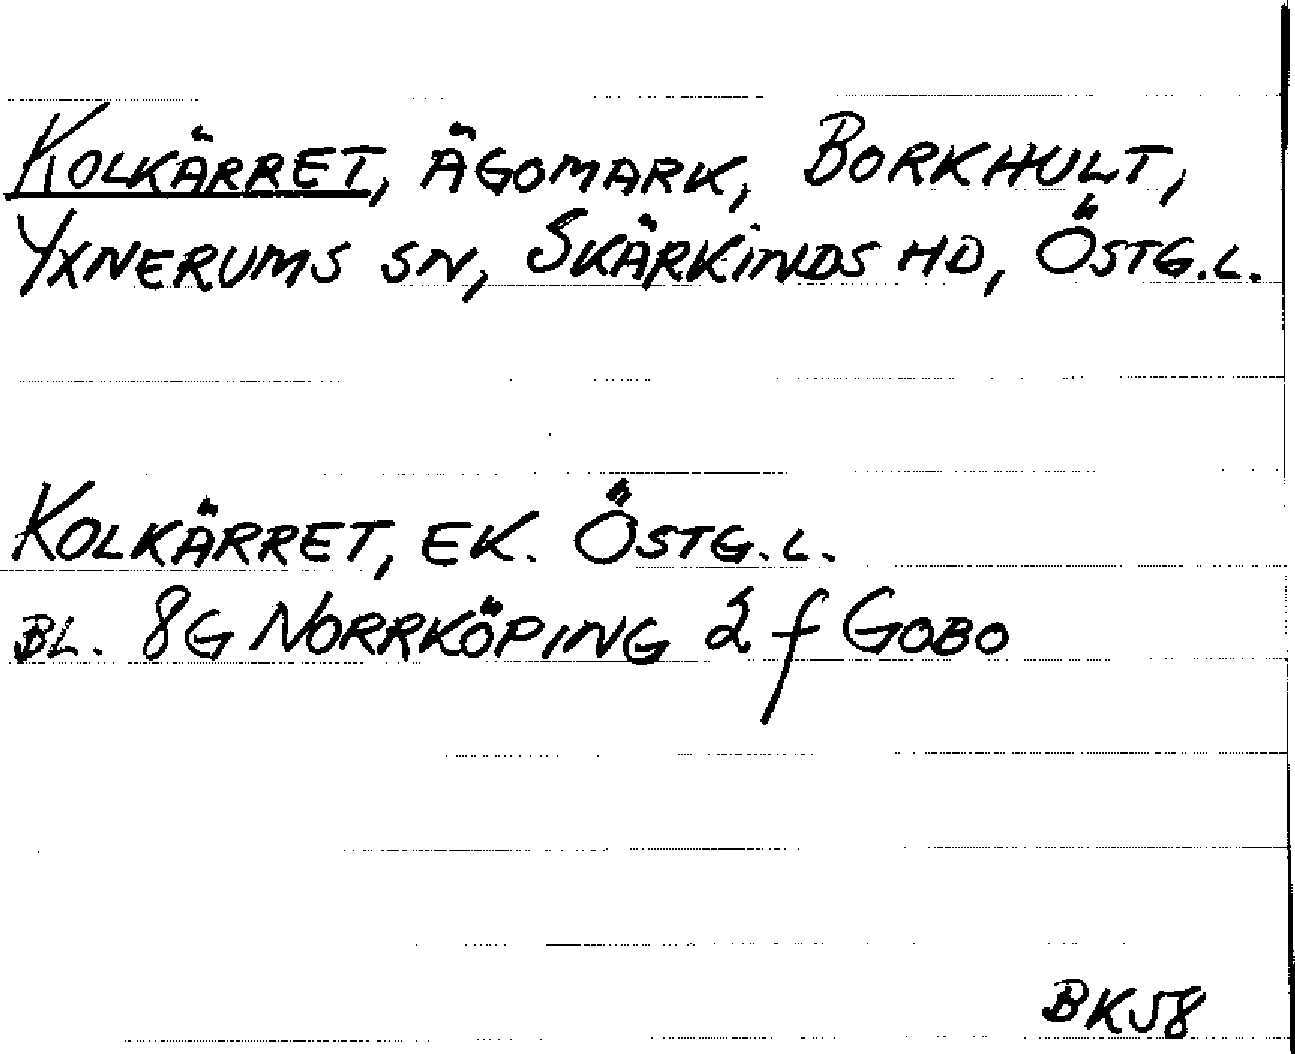 KOLKÄRRET, ÄGOMARK, BORKHULT,
YXNERUMS SN, SKÄRKINDS HD, ÖSTG.L.
KOLKÄRRET, EK. ÖSTG.L.
BL. 8G NORRKÖPING 2 f GOBO
BK58